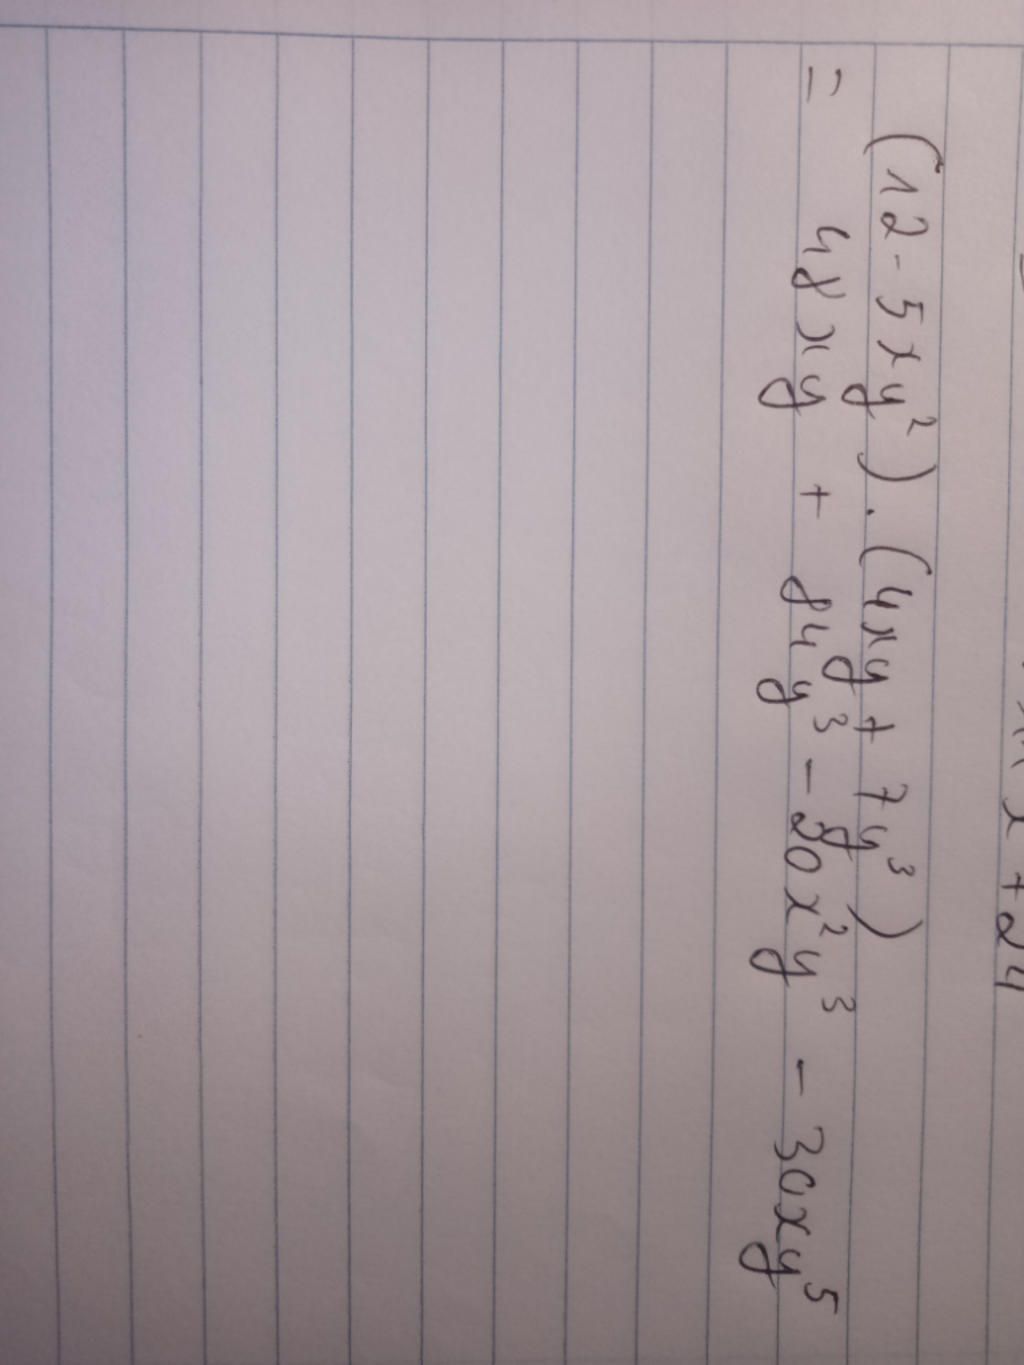 (12-5xy²).(4xy+7y³)
= 48xy + 84y³-20x²y³ - 30xy⁵